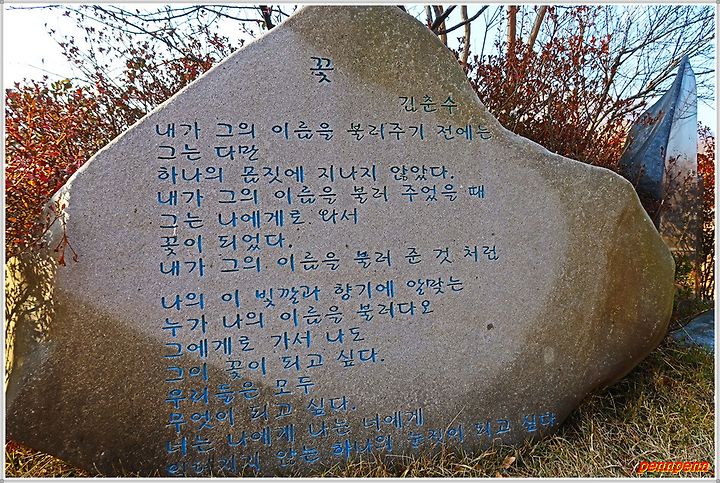 꽃
김춘수
내가 그의 이름을 불러주기 전에는
그는 다만
하나의 몸짓에 지나지 않았다.
내가 그의 이름을 불러 주었을 때
그는 나에게로 와서
꽃이 되었다.
내가 그의 이름을 불러 준 것 처럼
나의 이 빛깔과 향기에 알맞는
누가 나의 이름을 불러다오
그에게로 가서 나도
그의 꽃이 되고 싶다.
우리들은 모두
무엇이 되고 싶다.
너는 나에게 나는 너에게
잊혀지지 않는 하나의 눈짓이 되고 싶다
pennpenn